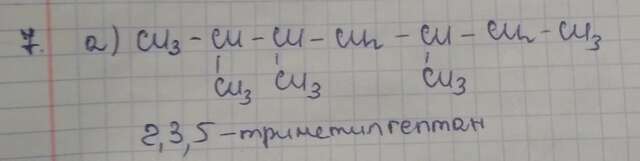 7. а) CH3 - CH - CH - CH2 - CH - CH2 - CH3
CH3 CH3 CH3
2,3,5-триметилгептан